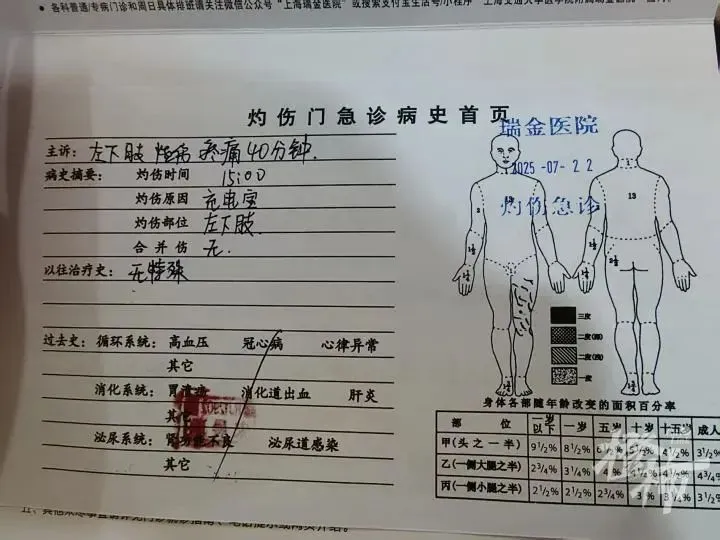 各科普通/专病门诊和周日具体排班请关注微信公众号“上海瑞金医院”或搜索支付宝生活号/小程序“上海交通大学医学院附属瑞金医院
灼伤门急诊病史首页
瑞金医院
2025-07-22
灼伤急诊
主诉：左下肢 疼痛40分钟.
病史摘要： 灼伤时间 15:00
灼伤原因 充电宝
灼伤部位 左下肢.
合并伤 无.
以往治疗史： 无特殊
过去史： 循环系统： 高血压 冠心病 心律异常
其它
消化系统： 胃溃疡 消化道出血 肝炎
其它
泌尿系统： 肾功能不良 泌尿道感染
其它
13
三度
二度(深)
二度(浅)
一度
身体各部随年龄改变的面积百分率
部 位 一岁以下 一岁 五岁 十岁 十五岁 成人
甲(头之一半) 9½% 8½% 4½% 3½%
乙(一侧大腿之半) 2¾% 3¼% 4¾%
丙(一侧小腿之半) 2½% 2½% 2¾% 3% 3¼% 3½%